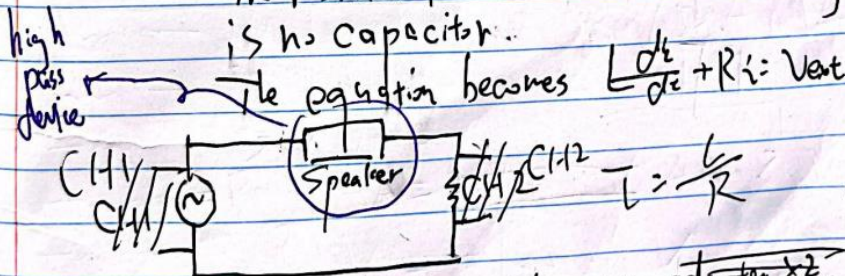 high
pass
device
is no capacitor.
The equation becomes L di/dt + Ri = Vext
CH1
Speaker
CH2
τ = L/R